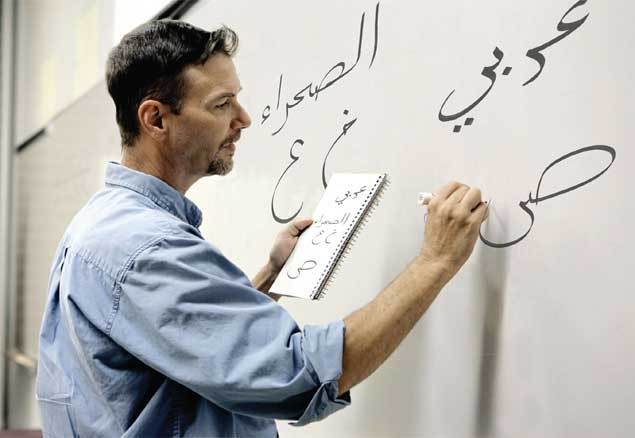 عربي
الصحراء
ع غ
ص
عربي
الصحراء
ع غ
ص